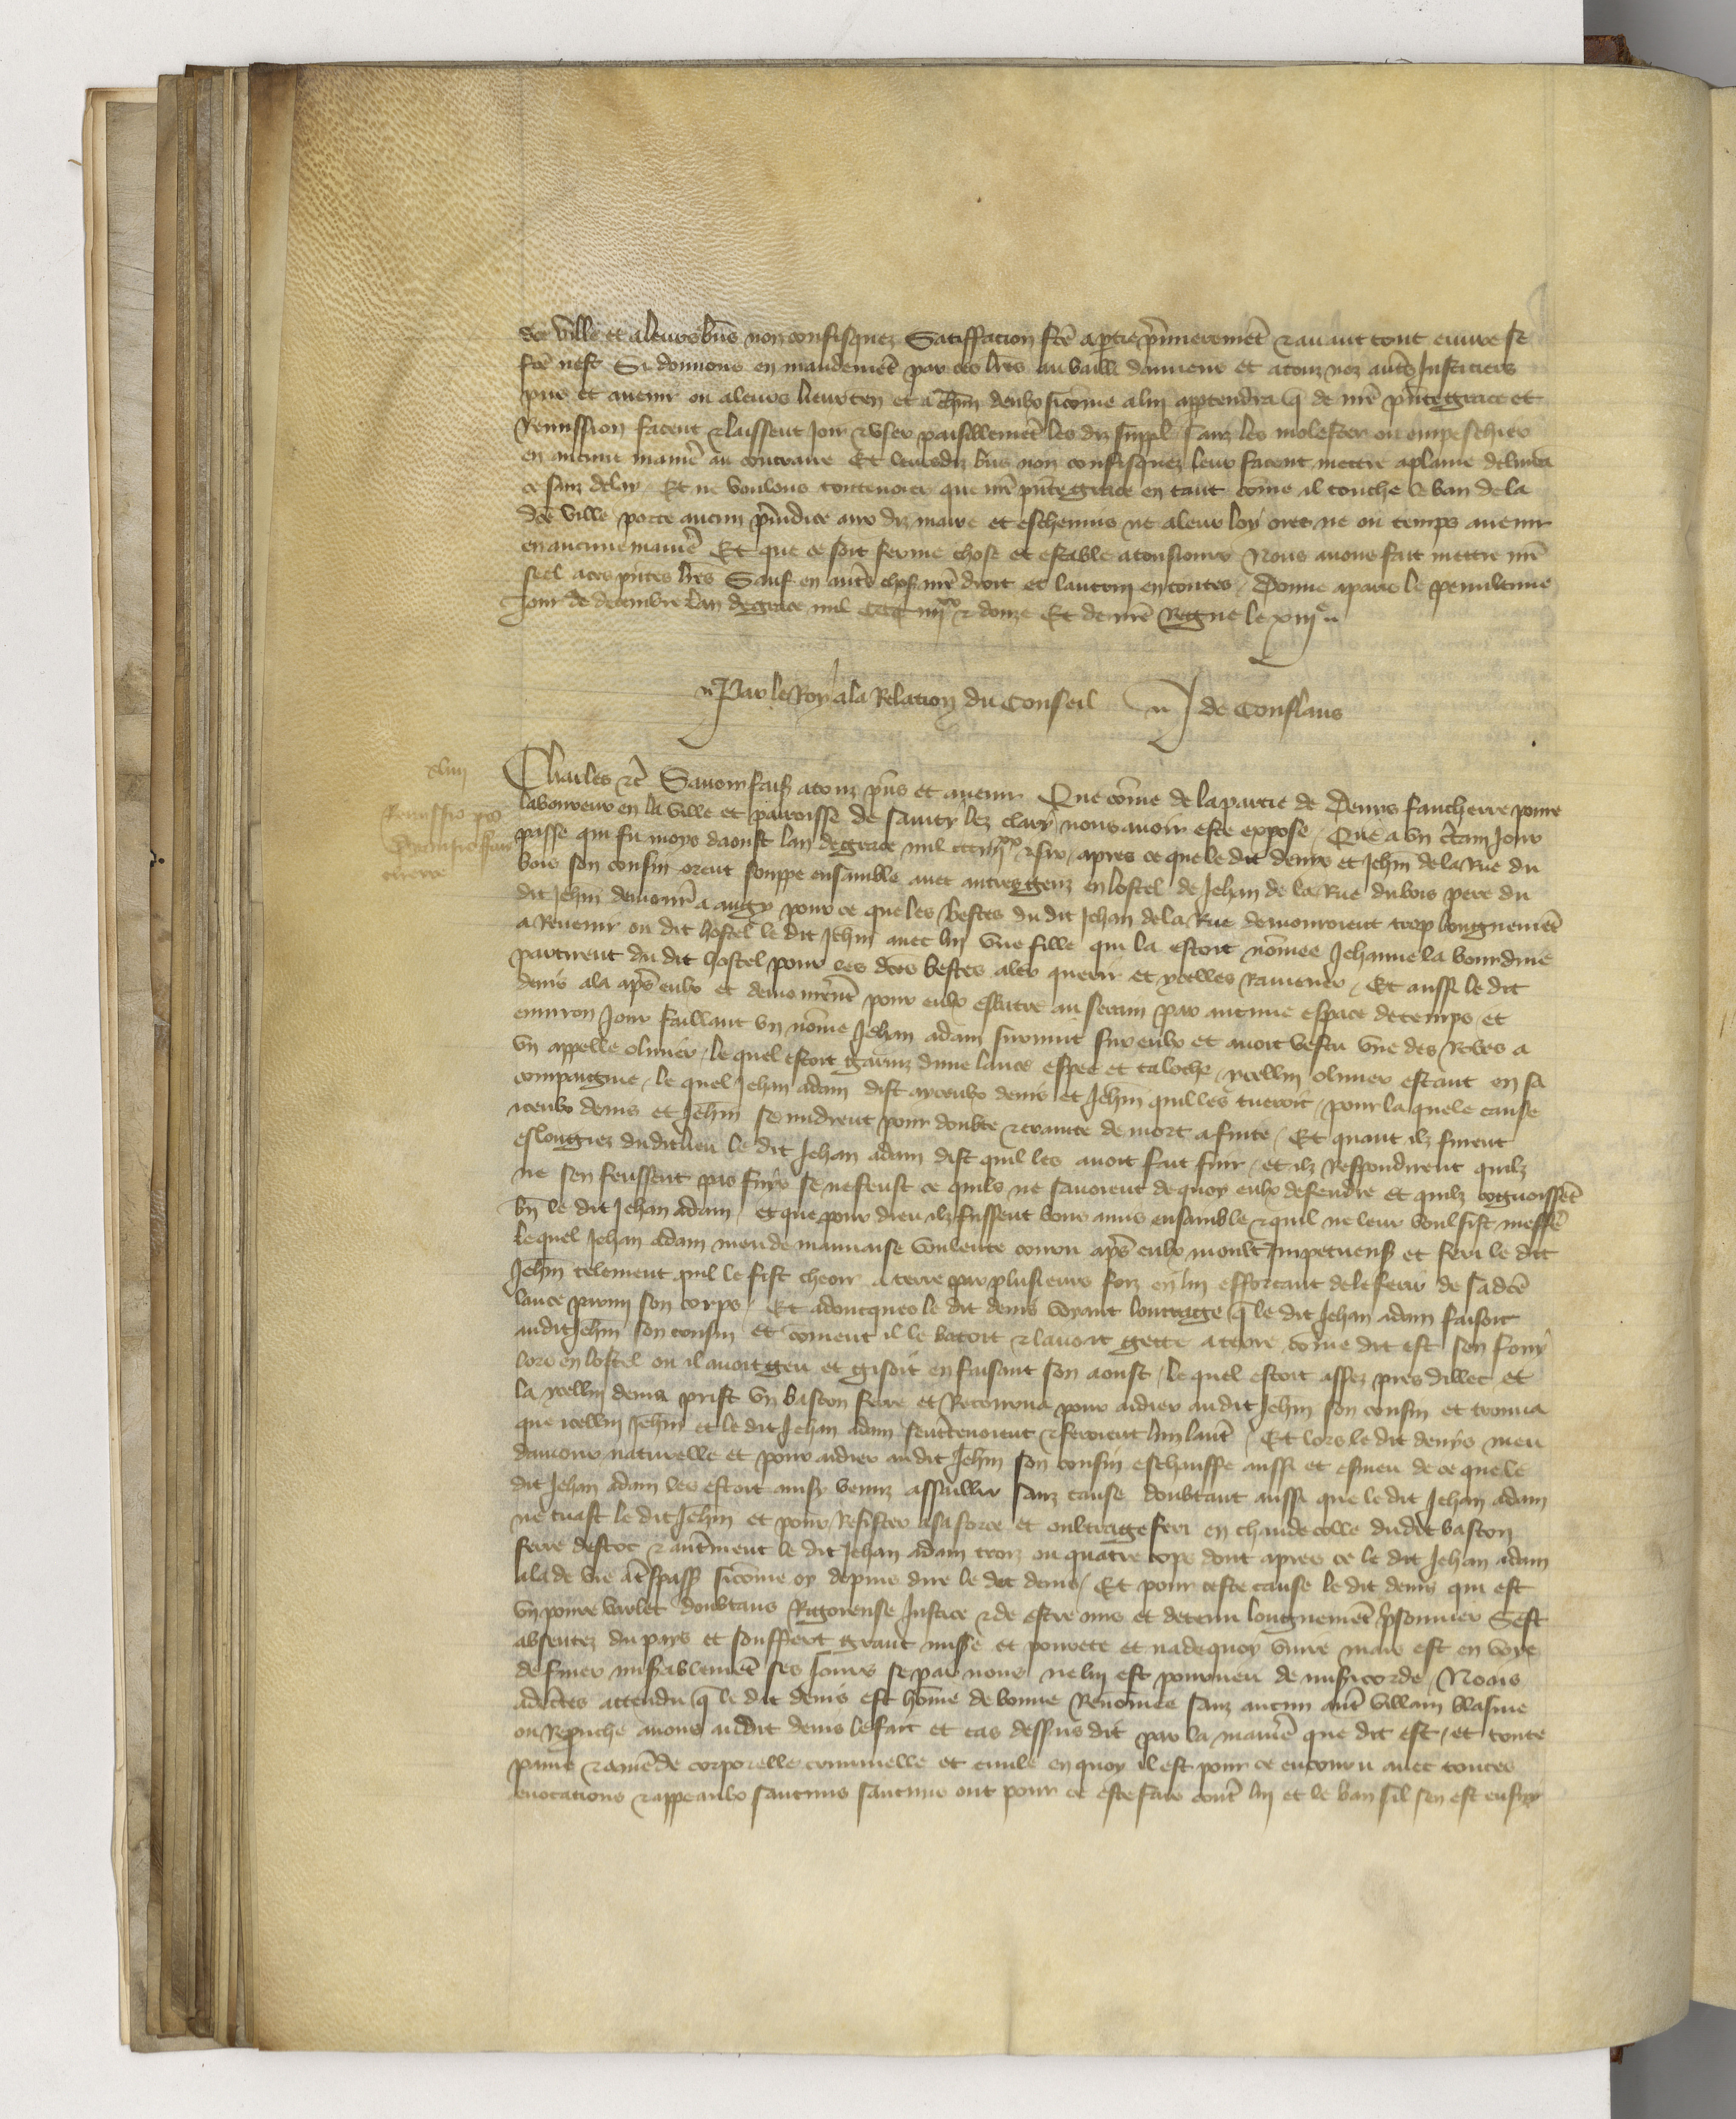 dce ville et a leurs biens non confisquez Satiffacion fce a ptie premieremet & auant tout euure se
fce nest Si donnons en mandemet par ces lres au bailli damiens et a touz noz autres Justiciers
pns et auenir ou a leurs lieuxten et a chun deulx sicome a lui apptendra q de nre pnte grace et
Remission facent & laissent Joir & vser paisiblemet les diz suppl sanz les molester ou empeschier
en aucune maniere au contraire Et leursdiz biens non confisquez leur facent mettre a plaine deliura
ce sanz delay Et ne voulons que nre pnte grace en tant come il touche le ban de la
dce ville porte aucun preiudice aux diz maire et escheuins ne a leur loy ores ne ou temps auenir
en aucune maniere Et que ce soit ferme chose et estable a tousiours Nous auons fait mettre nre
seel a ces pntes lres Sauf en autres choses nre droit et lautrui en toutes / Donne a paris le penultime
Jour de decembre lan de grace mil ccc iiiixx & douze Et de nre Regne le xiiie

Par le Roy a la Relacion du Conseil J de Conflans

xliiii
Remissio pro
Dionisio fau
cherre

Charles &c Sauoir faiz a touz pns et auenir Que come de la partie de Denys faucherre poure
laboureur en la ville et parroisse de lez clary nous auoir este expose / Que a vn ctain Jour
passe qui fu moys daoust lan de grace mil ccc iiiixx & six / apres ce que le dit denys et Jehin de la Rue du
bois son cousin orent souppe ensamble auec autres genz en lostel de Jehin de la Rue du bois pere du
dit Jehin demourt a augy pour ce que les bestes du dit Jehan de la Rue demouroient trop longuemet
a Reuenir ou dit hostel le dit Jehin auec lui vne fille qui la estoit nomee Jehanne la bourdine
partirent du dit hostel pour les dces bestes aler querir et ycelles Ramener / Et aussi le dit
denis ala apres eulx et demourerent pour eulx esbatre au serain par aucune espace de temps et
enuiron Jour faillant vn nome Jehan adam suruint sur eulx et auoit vestu vne des Robes a
vn appelle oliuier / le quel estoit garniz dune lance espee et taloche / ycellui oliuier estant en sa
compaignie / le quel Jehan adam dist a yceulx denis et Jehin quil les tueroit / pour la quele cause
iceulx denis et Jehin se midrent pour doubte & crainte de mort a fuite / Et quant ilz furent
eslongiez dudit lieu le dit Jehan adam dist quil les auoit fait fuir / et ilz Respondirent quilz
ne sen feussent pas fuys se ne feust ce quils ne sauoient de quoy eulx defendre et quilz cognoissoiet
bn le dit Jehan adam / et que pour dieu ilz fussent bons amis ensamble & quil ne leur voulsist meffe
le quel Jehan adam meu de mauuaise voulente couru apres eulx moult Impetueus et feri le dit
Jehin telement quil le fist cheoir a terre par plusieurs foiz en lui efforcant de le ferir de sa dce
lance parmi son corps / Et adoncques le dit denis voyant loultrage q le dit Jehan adam faisoit
au dit Jehin son cousin et coment il le batoit & lauoit gette a terre come dit est sen fouy
lors en lostel ou il auoit geu et gisoit en faisant son aoust / le quel estoit assez pres dillec et
la ycellui denis prist vn baston ferre et Retourna pour aidier au dit Jehin son cousin et trouua
que icellui Jehin et le dit Jehan adam sentretenoient & feroient lun lautre / Et lors le dit denys meu
damour naturelle et pour aidier au dit Jehin son cousin eschauffe aussi et esmeu de ce que le
dit Jehan adam les estoit ainsy venuz assaillir sanz cause doubtant aussi que le dit Jehan adam
ne tuast le dit Jehin et pour Resister a sa force et oultrage feri en chaude colle du dit baston
ferre destoc & autrement le dit Jehan adam troiz ou quatre cops dont apres ce le dit Jehan adam
ala de vie a trespass sicome oy depuis dire le dit denis / Et pour ceste cause le dit denis qui est
vn poure varlet doubtans Rigoreuse Justice & de estre mis et detenu longuemet prisonnier Sest
absentez du pays et souffert grant misere et pourete et na de quoy viure mais est en voye
de finer misablement ses Jours se par nous ne lui est pourueu de misicorde / Nous
adecertes attendu q le dit denis est home de bonne Renomee sanz aucun autre villain blasme
ou Reprouche auons au dit denis le fait et cas dessus dit par la maniere que dit est / et toute
paine & amende corporelle criminelle et ciuile en quoy il est pour ce encouru auec toutes
euocations & appeaulx saucuns saucuns ont pour ce este faiz contre lui et le ban sil sen est ensuy